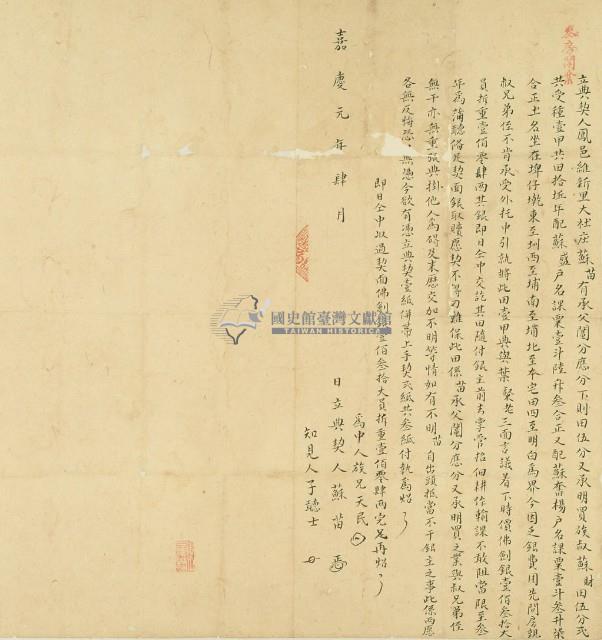 叁房鬮業
立典契人鳳邑維新里大社庄蘇苗有承父鬮分應分下則田伍分又承明買族叔蘇財田伍分弐
共受種壹甲共田拾坵年配蘇盛戶名課粟壹斗陸升叁合正又配蘇奮楊戶名課粟壹斗叁升柒
合正土名坐在埤仔墘東至圳西至埔南至墳北至本宅田四至明白為界今因乏銀費用先問房親
叔兄弟侄不肯承受外托中引就將此田壹甲典與葉 老三面言議着下時價佛劍銀壹佰叁拾大
員折重壹佰零肆兩其銀即日仝中交訖其田隨付銀主前去掌管招佃耕作輸課不敢阻當限至叁
年為滿聽俻足契面銀取贖原契不得刁難保此田係苗承父鬮分應分又承明買之業與叔兄弟侄
無干亦無重張典掛他人為碍及来歷交加不明等情如有不明苗自出頭抵當不干銀主之事此係両愿
各無反悔恐口無憑今欲有憑立典契壹紙併帶上手契弍紙共叁紙付執為炤
即日仝中收過契面佛劍銀壹佰叁拾大員折重壹佰零肆両完足再炤
為中人族兄天民
嘉慶元年肆月 日立典契人蘇苗
知見人子 士
國史館臺灣文獻館
TAIWAN HISTORICA